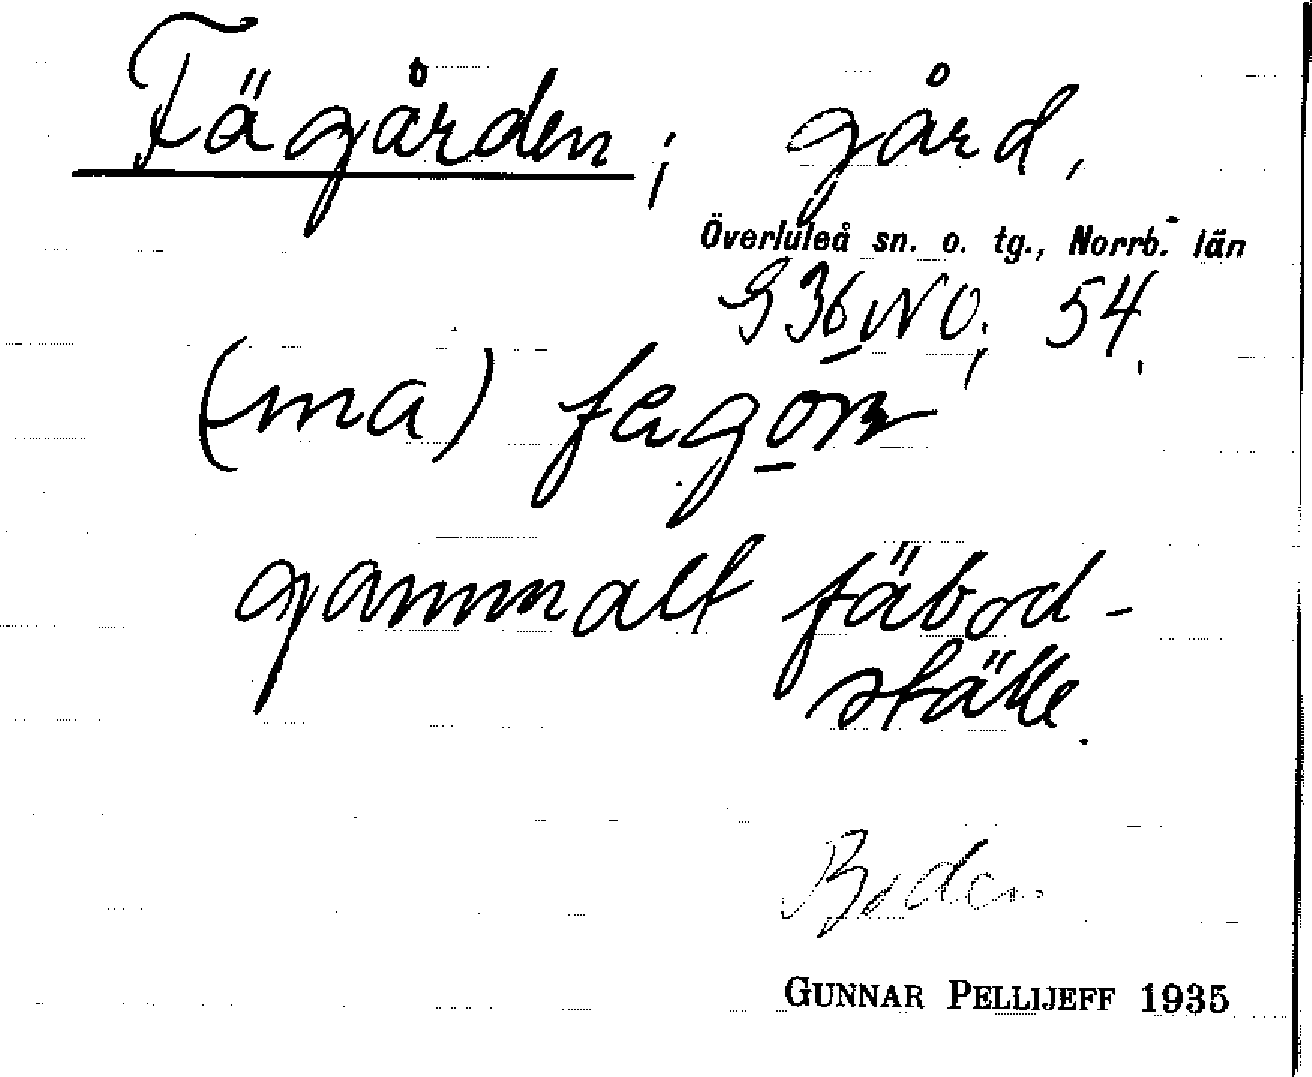 Fägården, gård,
Överluleå sn. o. tg., Norrb. län
G 36 NO; 54.
(ma) fegọrn
gammalt fäbod-
ställe.
Boden
GUNNAR PELLIJEFF 1935